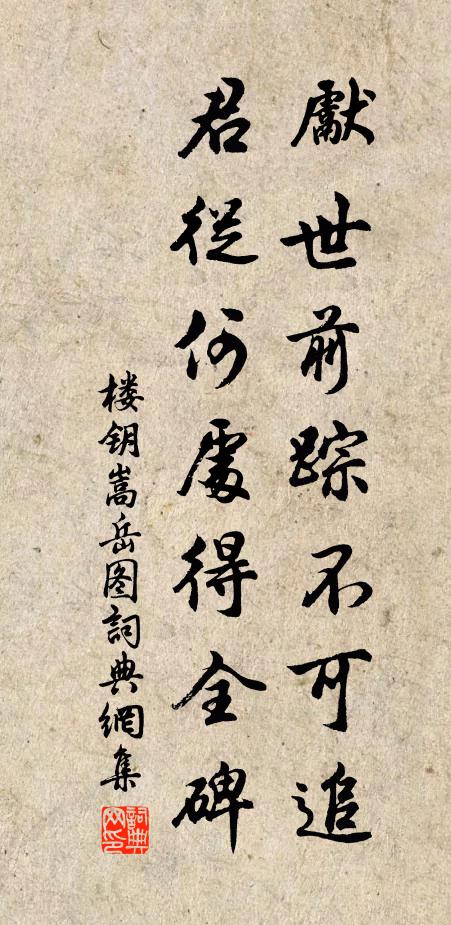 獻世前踪不可追
君從何處得全碑
楼钥嵩岳图詞典網集
詞典网印